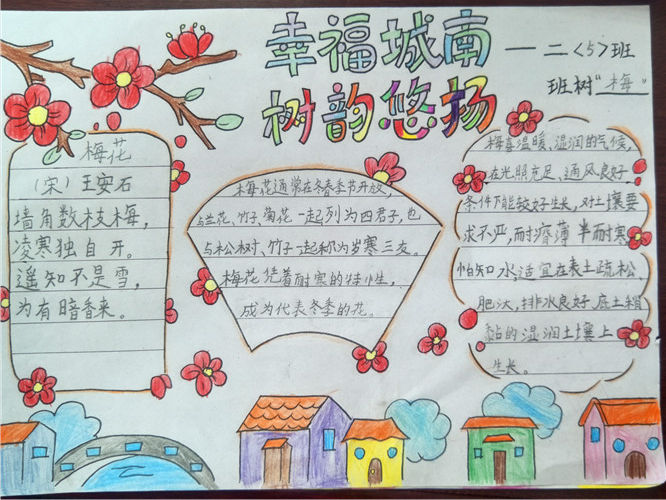 幸福城南
树韵悠扬
一二<5>班
班树"梅"
梅花
(宋)王安石
墙角数枝梅,
凌寒独自开。
遥知不是雪,
为有暗香来。
梅花通常在冬春季节开放,
与兰花、竹子、菊花一起列为四君子,也
与松树、竹子一起称为岁寒三友。
梅花凭着耐寒的特性,
成为代表冬季的花。
梅喜温暖、湿润的气候,
在光照充足、通风良好
条件下能较好生长,对土壤要
求不严,耐瘠薄半耐寒
怕知水,适宜在表土疏松、
肥沃,排水良好底土稍
黏的湿润土壤上
生长。